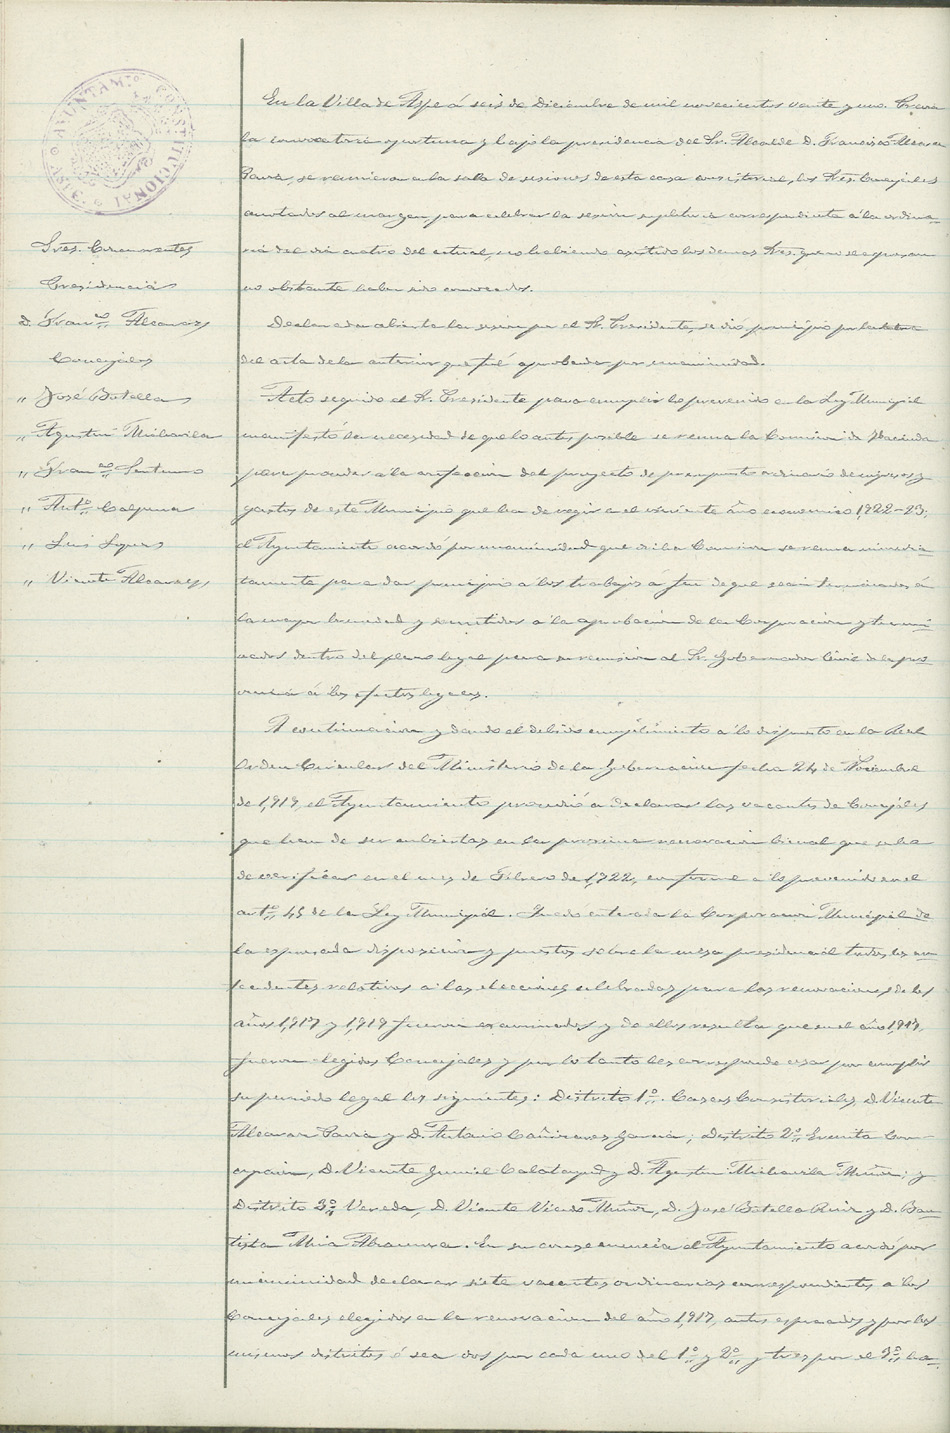 AYUNTAM.to CONSTITUCIONAL
* ASPE *
Sres. Concurrentes
Presidencia
D. Franco. Alcaraz
Concejales
" José Botella
" Agustin Mirávila
" Franco.
" Anto. Calpena
" Luis
" Vicente Alcaraz
En la Villa de Aspe á seis de Diciembre de mil novecientos veinte y uno. Previa
la convocatoria oportuna y bajo la presidencia del Sr. Alcalde D. Francisco Alcaraz
Pavia, se reunieron en la sala de sesiones de esta casa consistorial, los Sres. Concejales
anotados al margen, para celebrar la sesion supletoria correspondiente á la ordina-
ria del dia cuatro del actual, no habiendo asistido los demas Sres. que no se expresan
no obstante haber sido convocados.
Declarada abierta la sesion por el Sr. Presidente, se dió principio por la lectura
del acta de la anterior que fué aprobada por unanimidad.
Acto seguido el Sr. Presidente para cumplir lo prevenido en la Ley Municipal
manifestó la necesidad de que lo antes posible se reuna la Comision de Hacienda
para proceder a la confeccion del proyecto de presupuesto ordinario de ingresos y
gastos de este Municipio que ha de regir en el año economico 1922-23;
el Ayuntamiento acordó por unanimidad que dicha Comision se reuna inmedia-
tamente para dar principio a los trabajos á fin de que sean terminados á
la mayor brevedad y sometidos a la aprobacion de la Corporacion y
dentro del plazo legal para su remision al Sr. Gobernador Civil de la pro-
vincia á los efectos legales.
A continuacion y dando el debido cumplimiento a lo dispuesto en la Real
Orden Circular del Ministerio de la Gobernacion fecha 24 de Noviembre
de 1,919, el Ayuntamiento procedió a declarar las vacantes de Concejales
que han de ser cubiertas en la proxima renovacion bienal que se ha
de verificar en el mes de Febrero de 1,922, conforme a lo prevenido en el
arto. 45 de la Ley Municipal. Quedó enterada la Corporacion Municipal de
la expresada disposicion y puestos sobre la mesa presidencial todos los an-
tecedentes relativos a las elecciones celebradas para las renovaciones de los
años 1,917 y 1,919 fueron examinados y de ellos resulta que en el año 1,917,
fueron elegidos Concejales y por lo tanto les corresponde cesar por cumplir
su periodo legal los siguientes: Distrito 1º. Casas Consistoriales, D. Vicente
Alcaraz Pavia y D. Antonio Cañizares Garcia; Distrito 2º. Ermita Con-
cepcion, D. Vicente Gumiel Calatayud y D. Agustin Mirávila Muñoz; y
Distrito 3º Vereda, D. Vicente Vicedo Muñoz, D. José Botella Ruiz y D. Bau-
tista Mira Abarca. En su consecuencia el Ayuntamiento acordó por
unanimidad declarar siete vacantes ordinarias correspondientes a los
Concejales elegidos en la renovacion del año 1,917, antes expresados y por los
mismos distritos ó sea dos por cada uno del 1º y 2º, y tres por el 3º,